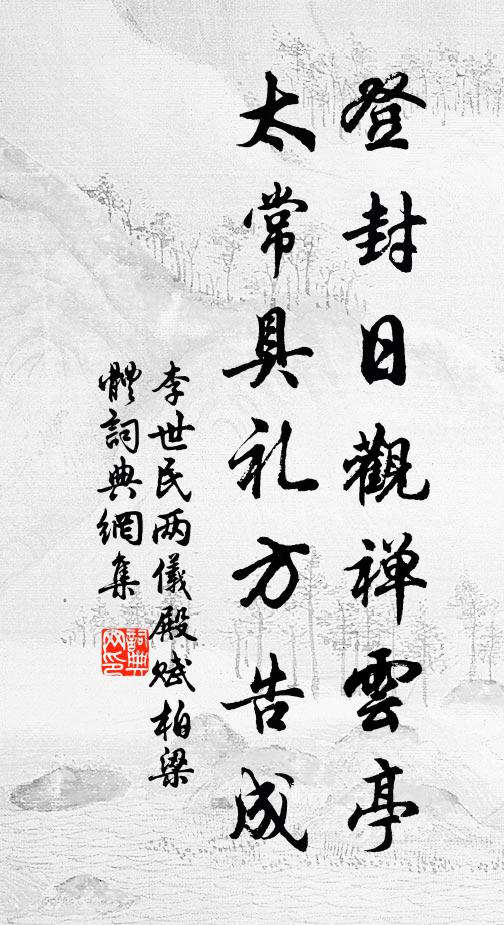 登封日觀禅雲亭
太常具礼方告成
李世民两儀殿賦柏梁
體詞典網集
詞典
网印